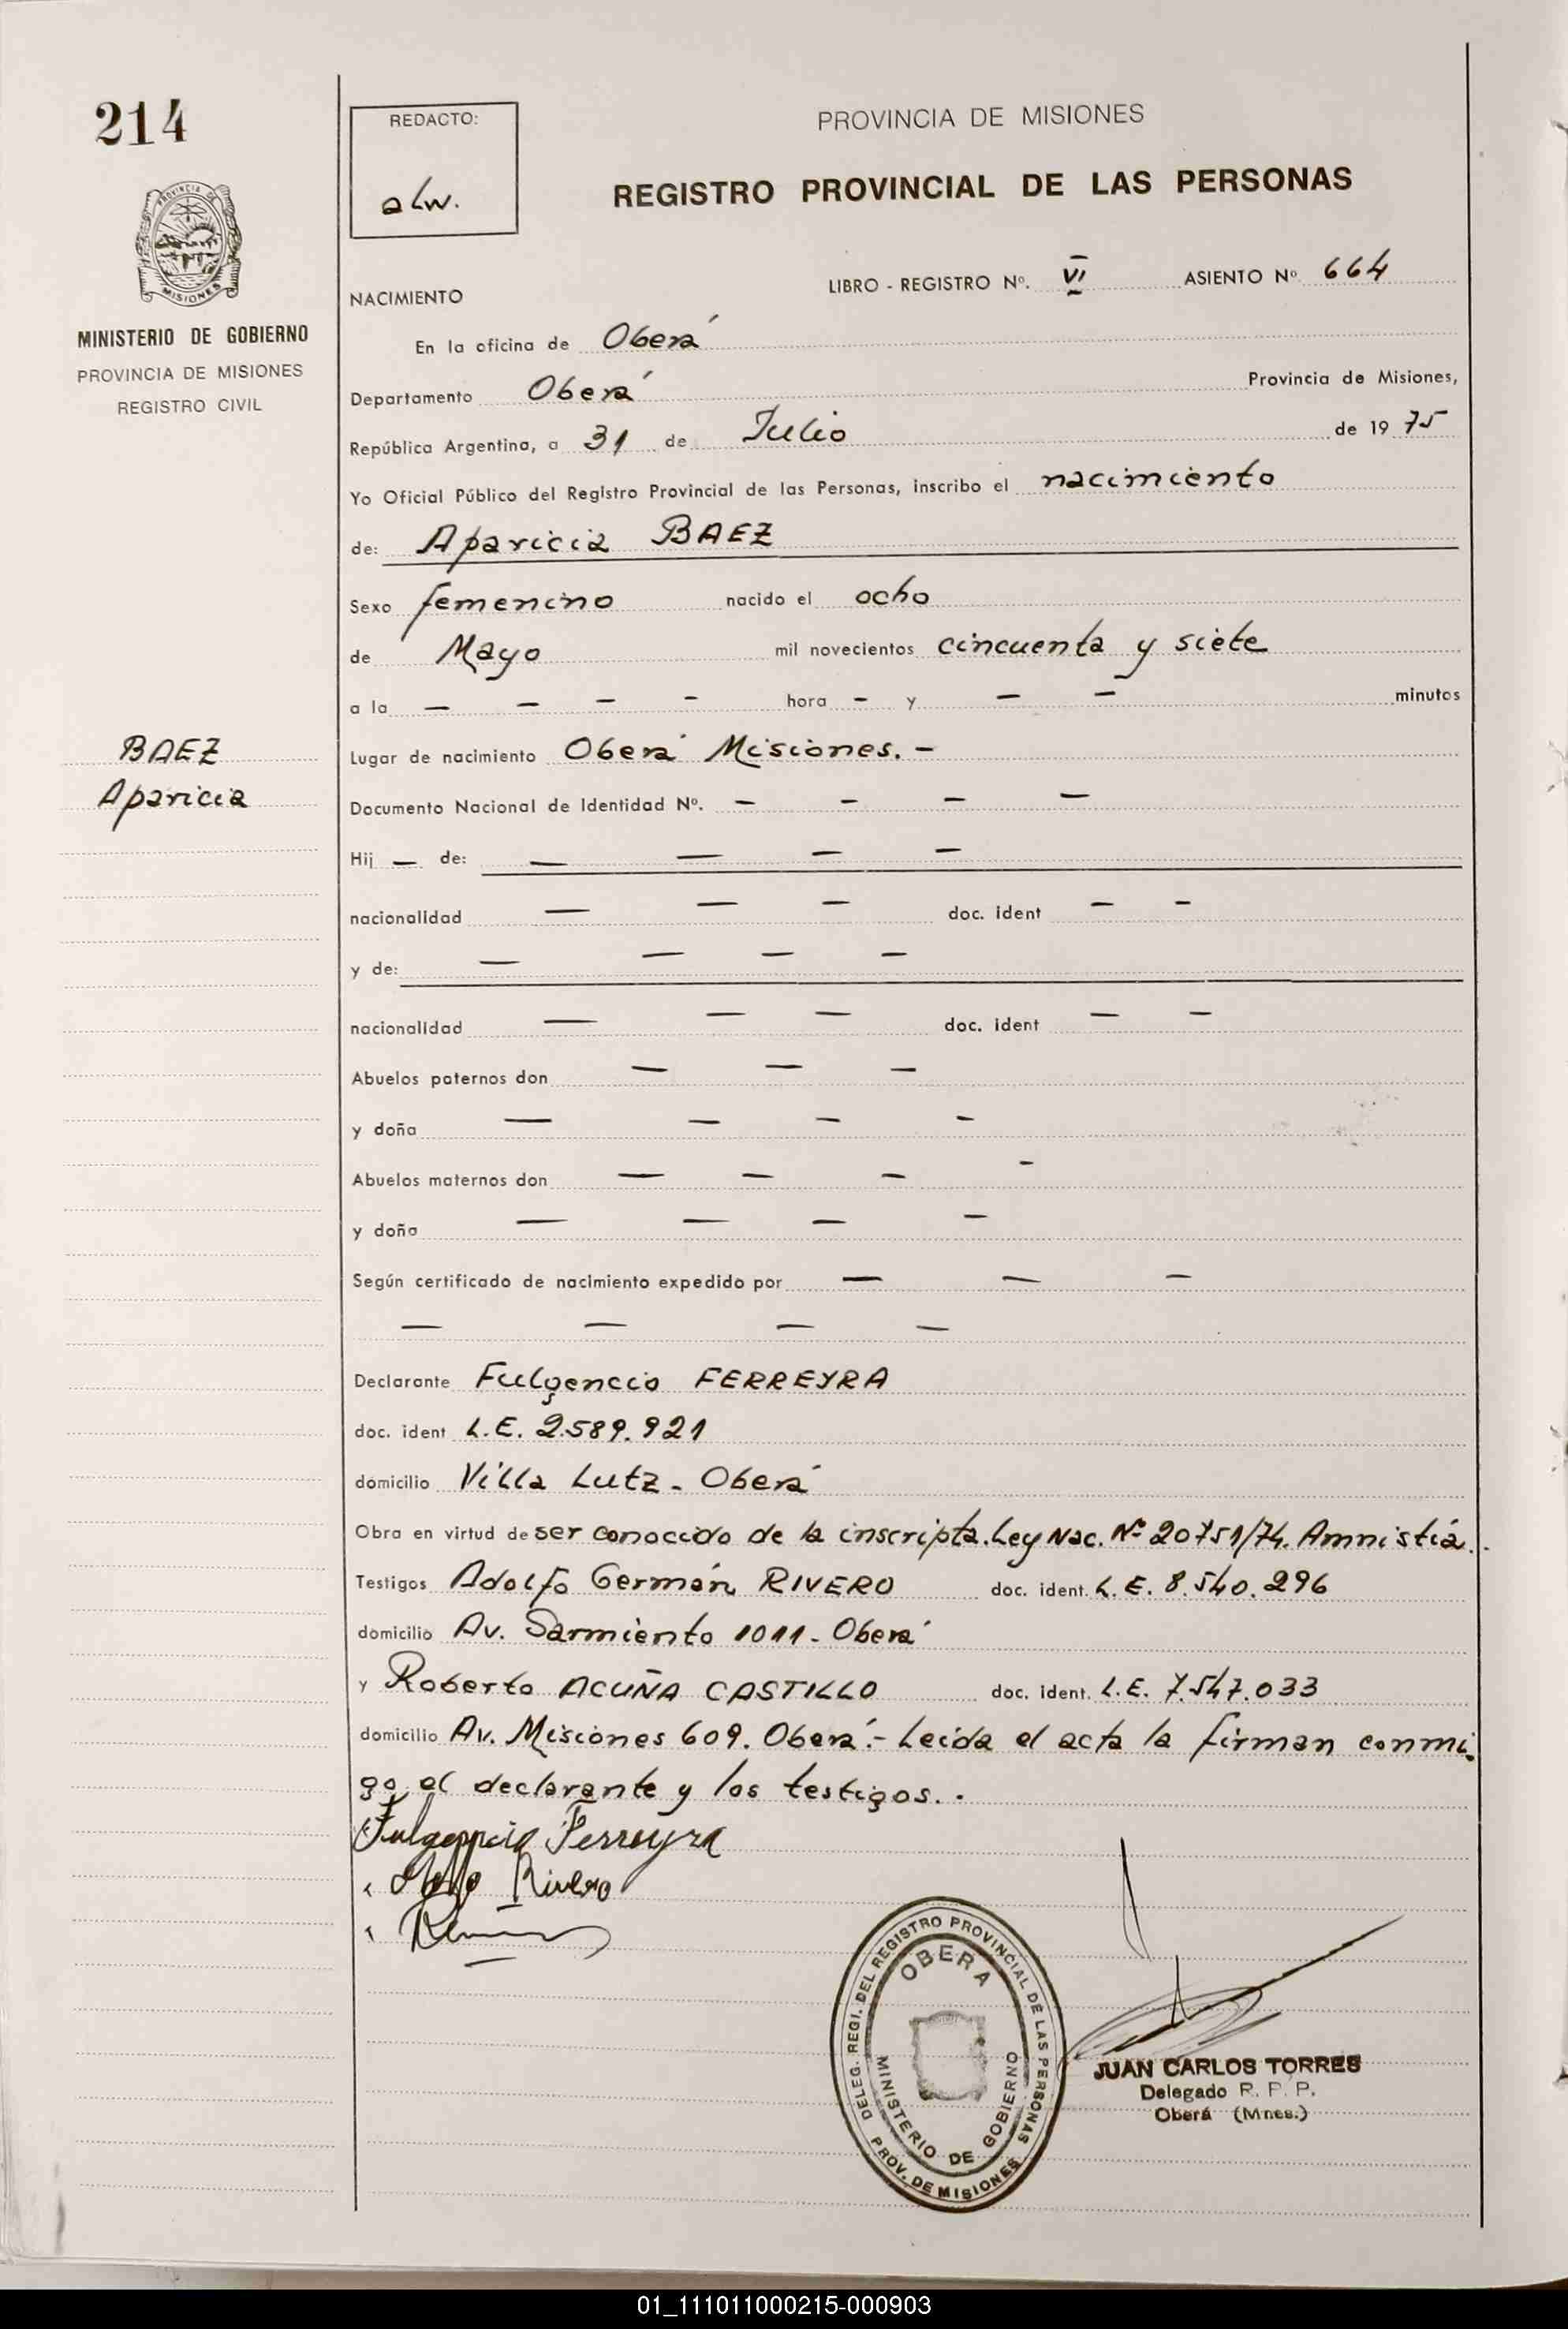 214
REDACTO:
alw.
PROVINCIA DE MISIONES
REGISTRO PROVINCIAL DE LAS PERSONAS
PROVINCIA DE
MISIONES
MINISTERIO DE GOBIERNO
PROVINCIA DE MISIONES
REGISTRO CIVIL
LIBRO - REGISTRO Nº. VI ASIENTO Nº. 664
NACIMIENTO
En la oficina de Oberá
Departamento Oberá Provincia de Misiones,
República Argentina, a 31 de Julio de 19 75
Yo Oficial Público del Registro Provincial de las Personas, inscribo el nacimiento
de: Aparicia BAEZ
Sexo femenino nacido el ocho
de Mayo mil novecientos cincuenta y siete
a la — — — — hora — y — — minutos
BAEZ
Aparicia
Lugar de nacimiento Oberá Misiones. —
Documento Nacional de Identidad Nº. — — — —
Hij — de: — — — —
nacionalidad — — — doc. ident — —
y de: — — — —
nacionalidad — — — doc. ident — —
Abuelos paternos don — — —
y doña — — — —
Abuelos maternos don — — — —
y doña — — — —
Según certificado de nacimiento expedido por — — —
— — — —
Declarante Fulgencio FERREYRA
doc. ident L.E. 2.589.921
domicilio Villa Lutz - Oberá
Obra en virtud de ser conocido de la inscripta. Ley Nac. Nº 20751/74. Amnistía.
Testigos Adolfo Germán RIVERO doc. ident. L.E. 8.540.296
domicilio Av. Sarmiento 1011 - Oberá
y Roberto ACUÑA CASTILLO doc. ident. L.E. 7.547.033
domicilio Av. Misiones 609. Oberá.- Leída el acta la firman conmi
go el declarante y los testigos..
Fulgencio Ferreyra
Rivero
DELEG. REGI. DEL REGISTRO PROVINCIAL DE LAS PERSONAS
PROV. DE MISIONES
OBERA
MINISTERIO DE GOBIERNO
JUAN CARLOS TORRES
Delegado R. P. P.
Oberá (Mnes.)
01_111011000215-000903